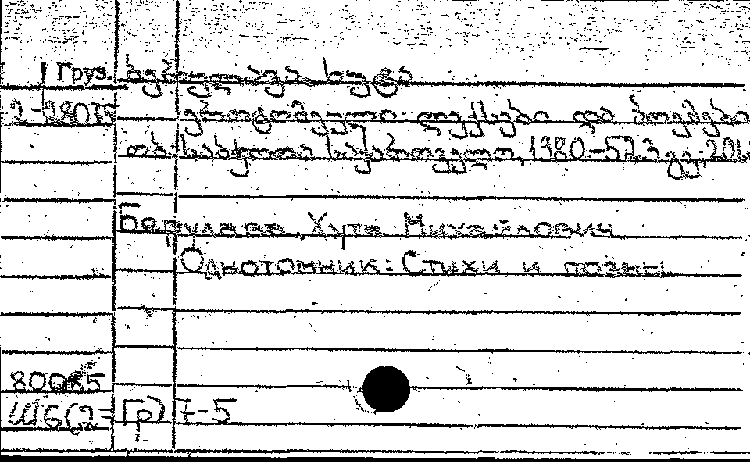 Груз. ბერულავა ხუტა
2-28075 ერთტომეული: ლექსები და პოემები
თბ. საბჭოთა საქართველო, 1980 – 573 გვ. 20
Берулава, Хута Михайлович
Однотомник: Стихи и поэмы
80085
Ш6(2=Гр)7-5